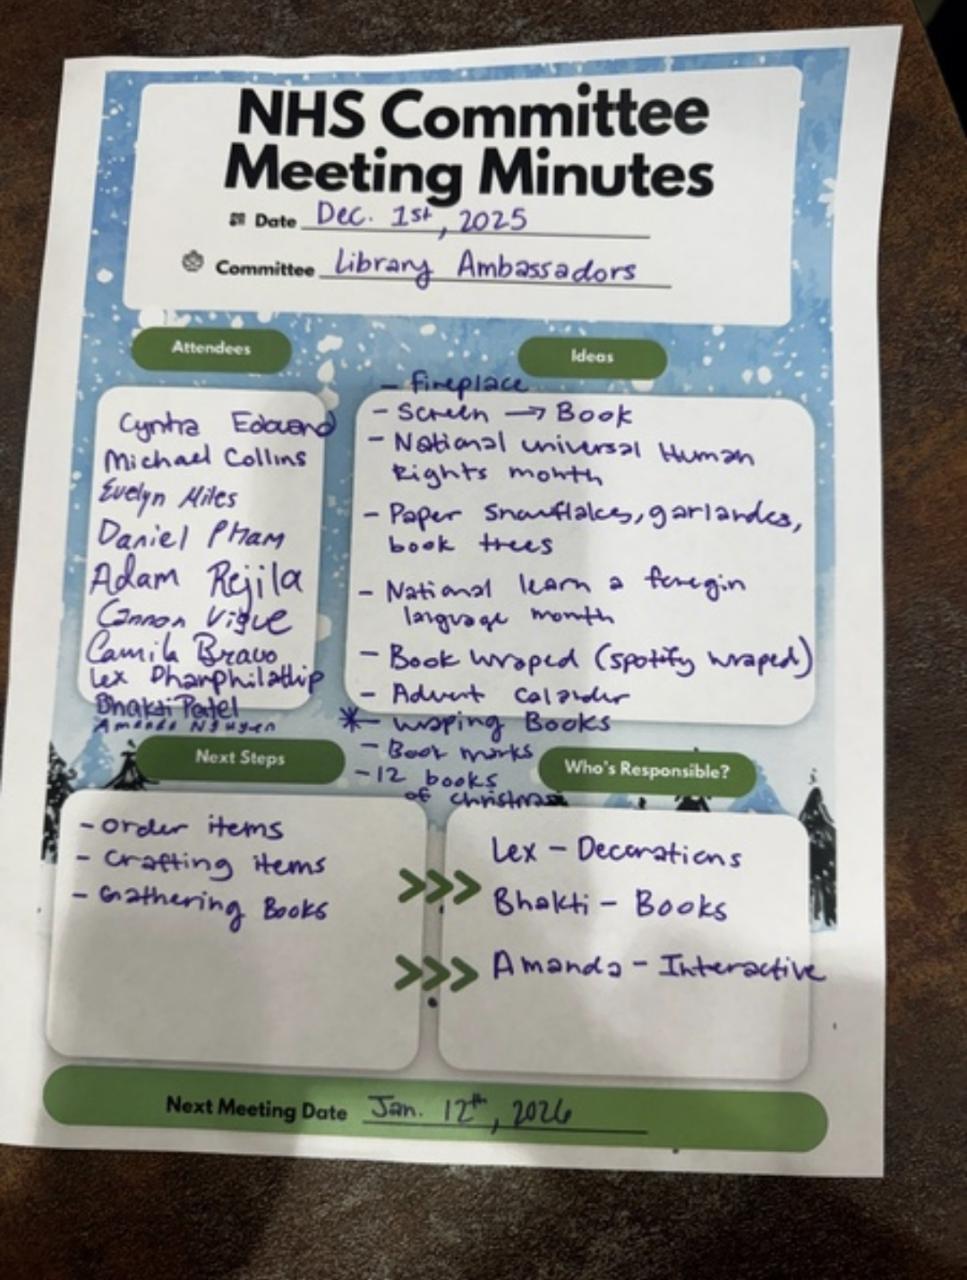 NHS Committee
Meeting Minutes
Date Dec. 1st, 2025
Committee Library Ambassadors
Attendees
Cyntra Edouard
Michael Collins
Evelyn Miles
Daniel Pham
Adam Rejila
Cannon Vigue
Camila Bravo
Lex Phanphilathip
Bhakti Patel
Amanda Nguyen
Ideas
- fireplace
- Screen → Book
- National universal Human
Rights month
- Paper Snowflakes, garlandes,
book trees
- National learn a foregin
language month
- Book wraped (spotify wraped)
- Advent calander
*- wraping Books
- Book marks
- 12 books
of christmas
Next Steps
- order items
- crafting items
- Gathering Books
Who's Responsible?
Lex - Decorations
>>> Bhakti - Books
>>> Amanda - Interactive
Next Meeting Date Jan. 12th, 2026